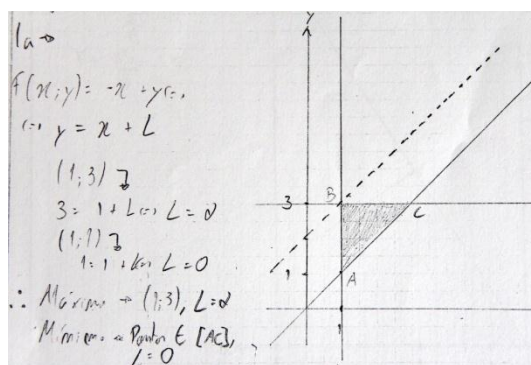 1a →
F(x;y) = -x + y ⇔
⇔ y = x + L
(1;3)
3 = 1 + L ⇔ L = 2
(1;1)
1 = 1 + L ⇔ L = 0
∴ Máximo → (1;3), L = 2
Mínimo → Pontos ∈ [AC],
L = 0
y
3
B
C
1
A
1